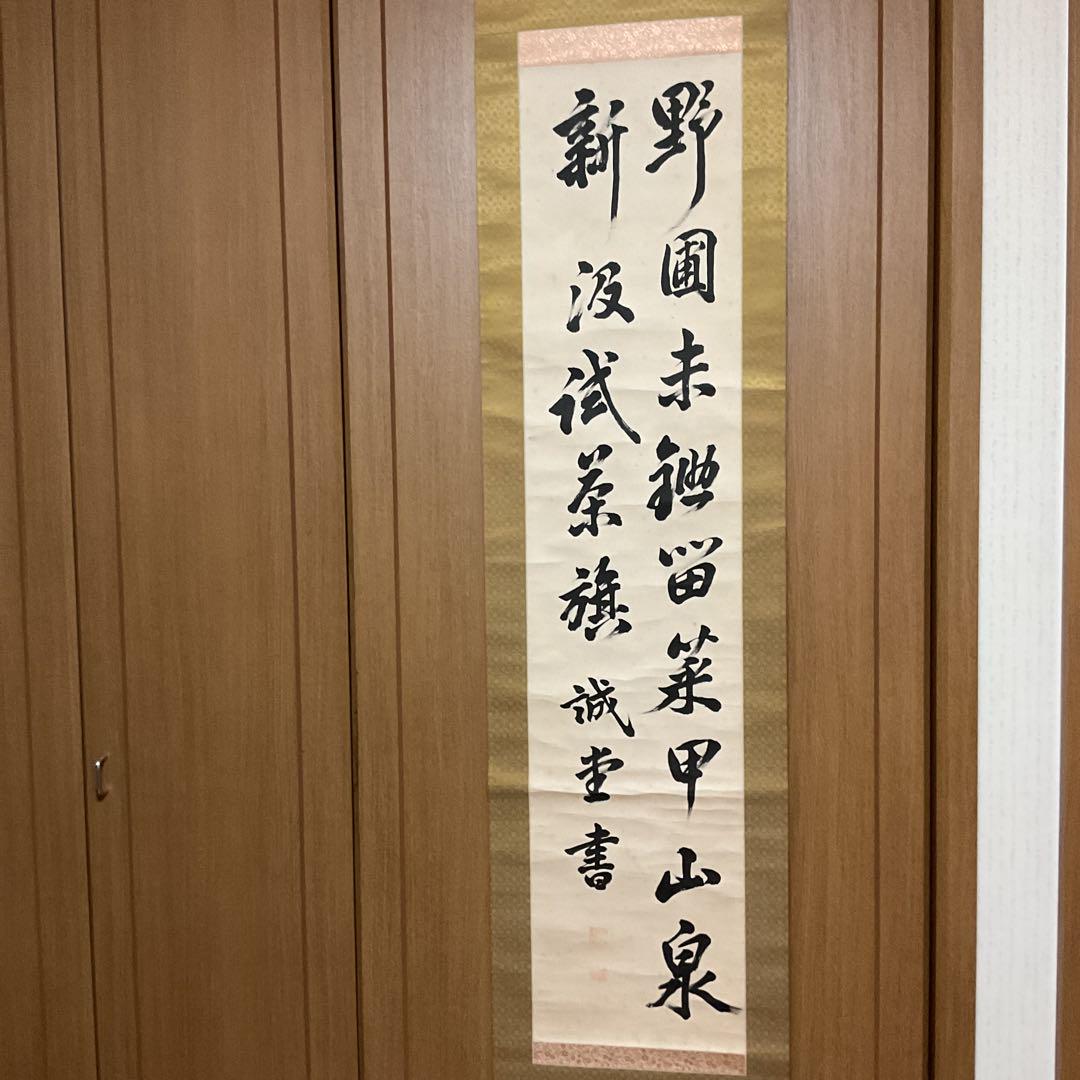 野圃未鋤留菜甲山泉
新汲試茶旗 誠堂書